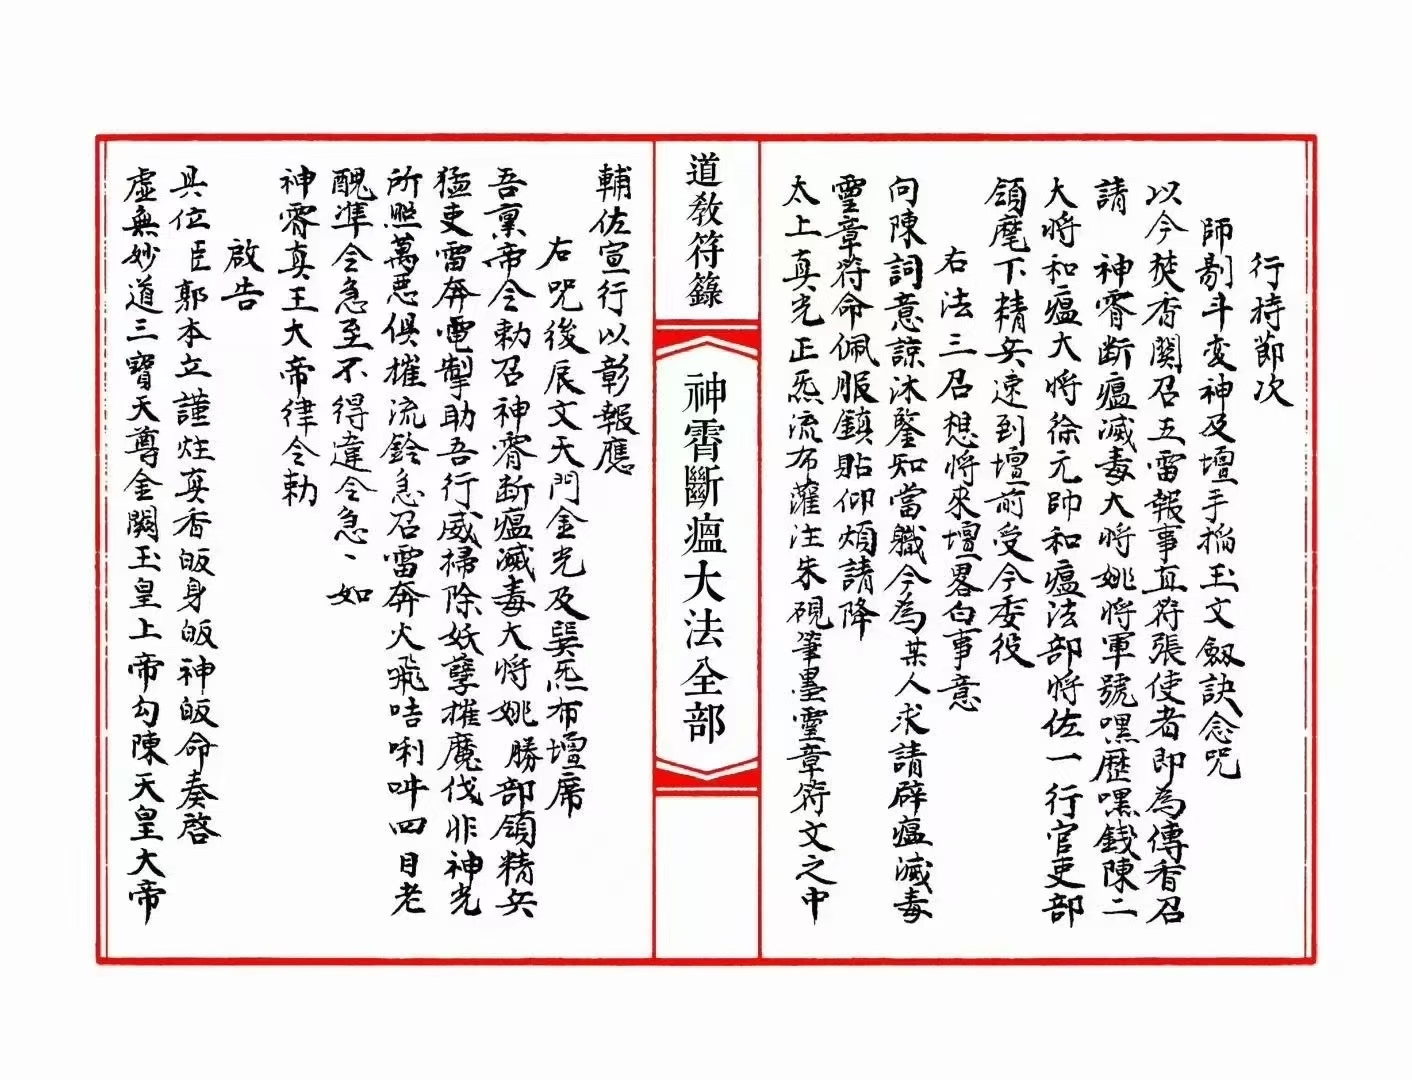 行持節次
師剔斗変神及壇手搯玉文劔訣念咒
以今焚香関召五雷報事直符張使者即為傳香召
請　神霄断瘟滅毒大将姚将軍號嘿歷嘿錢陳二
大将和瘟大将徐元帥和瘟法部将佐一行官吏部
領麾下精兵速到壇前受今委役
右法三召想将來壇畧白事意
向陳詞意諒沐鑒知當職今為某人求請辟瘟滅毒
霊章符命佩服鎮貼仰煩請降
太上真光正炁流布灌注朱硯筆墨霊章符文之中
道教符籙
神霄斷瘟大法全部
輔佐宣行以彰報應
右咒後辰文天門金光及巽炁布壇席
吾稟帝令勅召神霄断瘟滅毒大将姚　勝部領精兵
猛吏雷奔電掣助吾行威掃除妖孽摧魔伐非神光
所照萬惡俱摧流鈴急召雷奔火飛咭唎吽四目老
醜準令急至不得違令急〻如
神霄真王大帝律令勅
啟告
具位臣郭本立謹炷真香皈身皈神皈命奏啓
虛無妙道三寶天尊金闕玉皇上帝勾陳天皇大帝